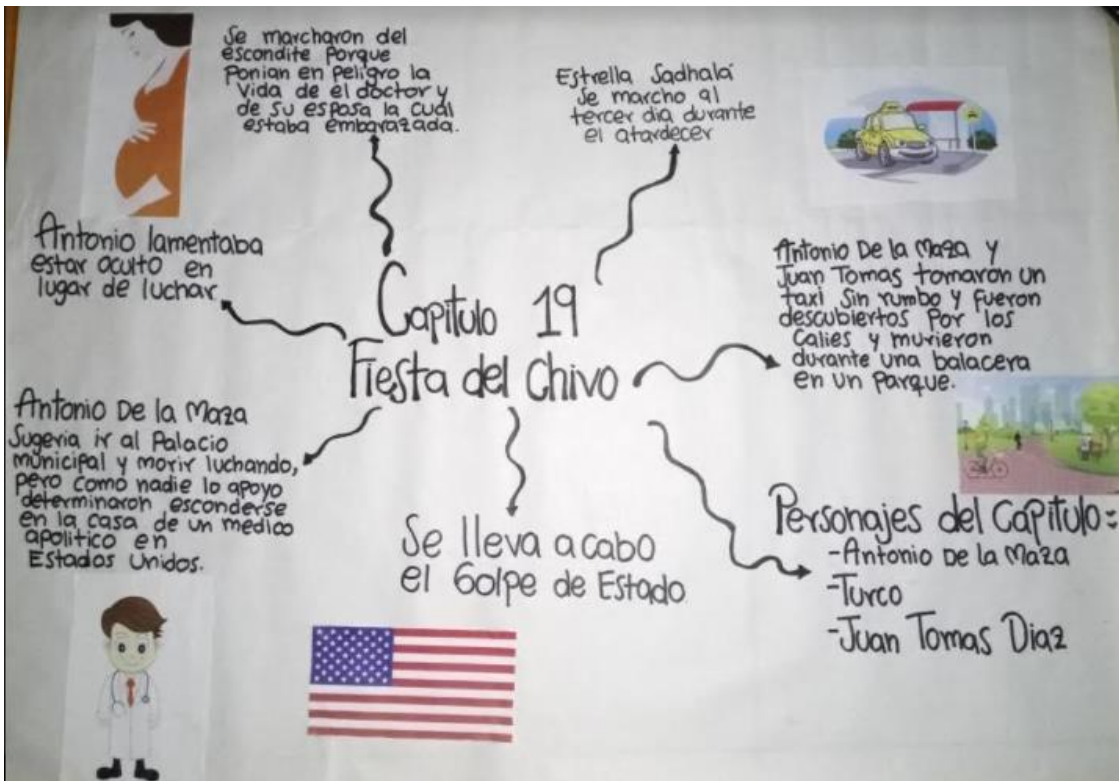 Se marcharon del
escondite Porque
Ponian en peligro la
vida de el doctor y
de su esposa la cual
estaba embarazada.
Estrella Sadhalá
se marcho al
tercer dia durante
el atardecer
Antonio lamentaba
estar oculto en
lugar de luchar
Capitulo 19
Fiesta del Chivo
Antonio De la Maza y
Juan Tomas tomaron un
taxi Sin rumbo y fueron
descubiertos Por los
Calies y murieron
durante una balacera
en un Parque.
Antonio De la Maza
Sugeria ir al Palacio
municipal y morir luchando,
pero como nadie lo apoyo
determinaron esconderse
en la casa de un medico
apolitico en
Estados Unidos.
Se lleva acabo
el Golpe de Estado
Personajes del Capitulo:
-Antonio De la Maza
-Turco
-Juan Tomas Diaz